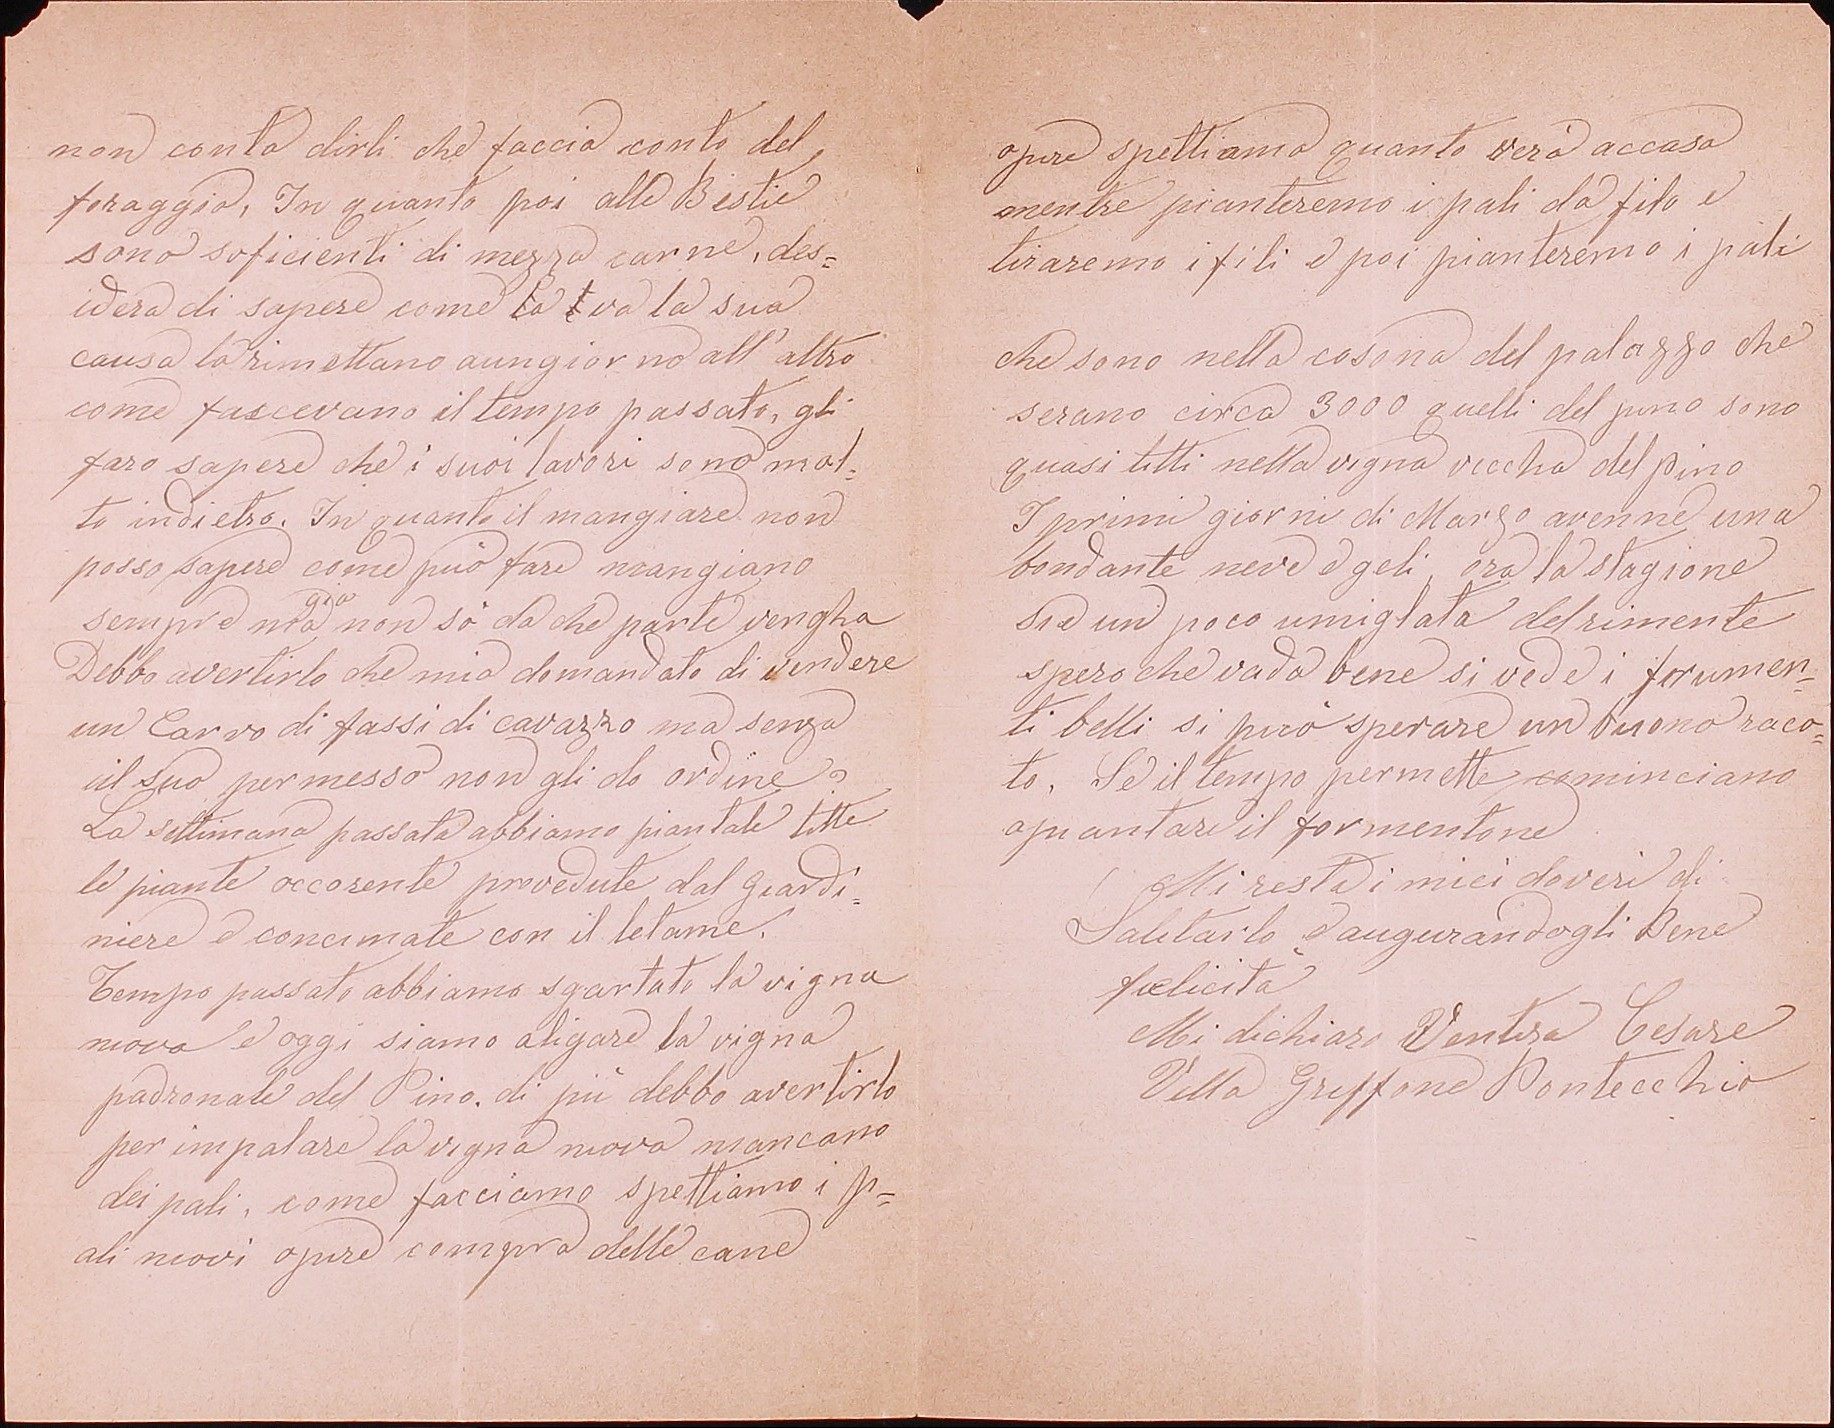 non conta dirli che faccia conto del
foraggio, In quanto poi alle Bestie
sono soficienti di mezza carne, des=
idera di sapere come la va la sua
causa la rimettano aungiorno all'altro
come faccevano il tempo passato, gli
faro sapere che i suoi lavori sono mol=
to indietro. In quanto il mangiare non
posso sapere come può fare mangiano
sempre ma già non sò da che parte vengha
Debbo avertirlo che mia domandato di vendere
un Carro di fassi di cavazzo ma senza
il suo permesso non gli do ordine
La settimana passata abbiamo piantate tutte
le piante occorente provedute dal Giardi=
niere e concimate con il letame.
Tempo passato abbiamo sgartato la vigna
nuova e oggi siamo aligare la vigna
padronale del Pino. di più debbo avertirlo
per impalare la vigna nuova mancano
dei pali, come facciamo spettiamo i p=
ali nuovi opure compra delle cane
opure spettiamo quanto verà accasa
mentre pianteremo i pali da filo e
tiraremo i fili e poi pianteremo i pali
che sono nella casona del palazzo che
serano circa 3000 quelli del pino sono
quasi tutti nella vigna veccha del pino
I primi giorni di Marzo avenne una
bondante neve e geli, ora la stagione
sie un poco umigliata delrimente
spero che vada bene si vede i forumen=
ti belli si può sperare un buono raco=
to. Se il tempo permette cominciano
apiantare il formentone
Mi resta i miei doveri di
Salutarlo e augurandogli Bene
felicità
Mi dichiaro Ventura Cesare
Villa Griffone Pontecchio